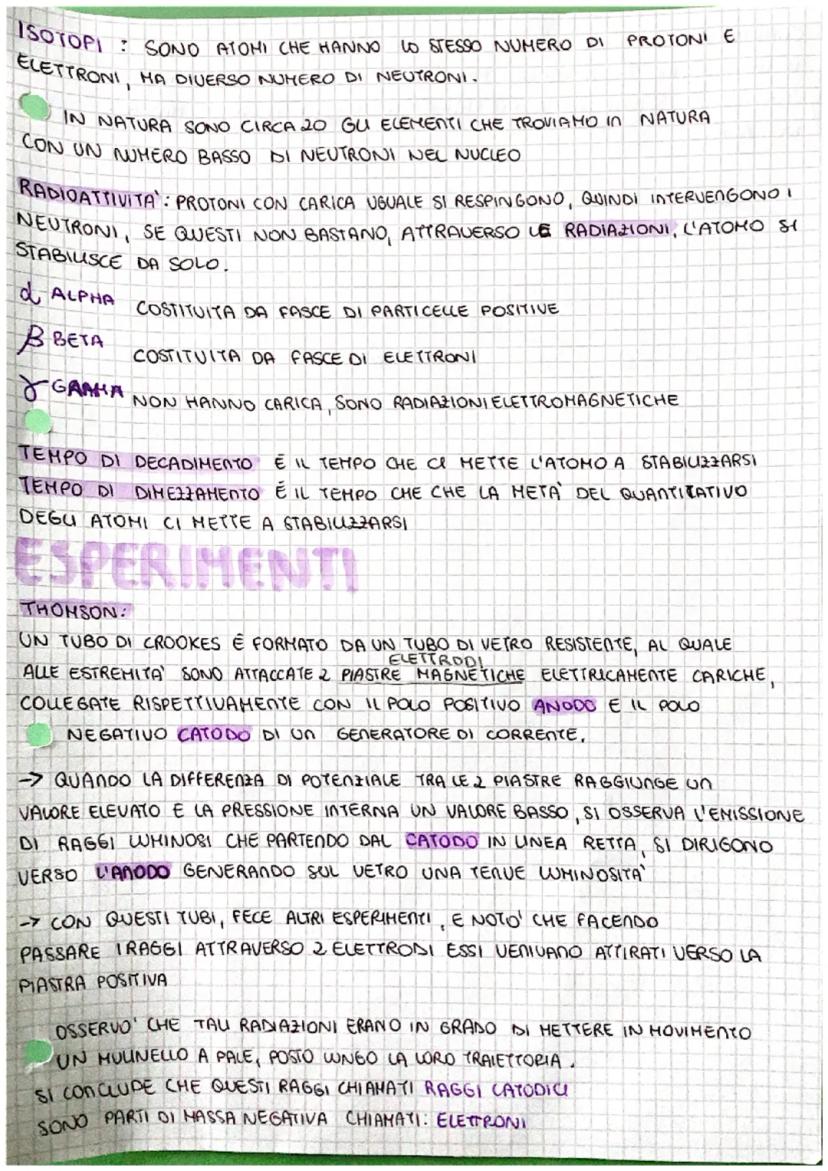 ISOTOPI : SONO ATOMI CHE HANNO LO STESSO NUMERO DI PROTONI E
ELETTRONI, MA DIVERSO NUMERO DI NEUTRONI.
IN NATURA SONO CIRCA 20 GLI ELEMENTI CHE TROVIAMO in NATURA
CON UN NUMERO BASSO DI NEUTRONI NEL NUCLEO
RADIOATTIVITA': PROTONI CON CARICA UGUALE SI RESPINGONO, QUINDI INTERVENGONO I
NEUTRONI, SE QUESTI NON BASTANO, ATTRAVERSO LE RADIAZIONI, L'ATOMO SI
STABILISCE DA SOLO.
α ALPHA COSTITUITA DA FASCE DI PARTICELLE POSITIVE
β BETA COSTITUITA DA FASCE DI ELETTRONI
γ GAMMA NON HANNO CARICA, SONO RADIAZIONI ELETTROMAGNETICHE
TEMPO DI DECADIMENTO É IL TEMPO CHE CI METTE L'ATOMO A STABILIZZARSI
TEMPO DI DIMEZZAMENTO É IL TEMPO CHE CHE LA METÀ DEL QUANTITATIVO
DEGLI ATOMI CI METTE A STABILIZZARSI
ESPERIMENTI
THOMSON:
UN TUBO DI CROOKES É FORMATO DA UN TUBO DI VETRO RESISTENTE, AL QUALE
ELETTRODI
ALLE ESTREMITA' SONO ATTACCATE 2 PIASTRE MAGNETICHE ELETTRICAMENTE CARICHE,
COLLEGATE RISPETTIVAMENTE CON IL POLO POSITIVO ANODO E IL POLO
NEGATIVO CATODO DI UN GENERATORE DI CORRENTE.
→ QUANDO LA DIFFERENZA DI POTENZIALE TRA LE 2 PIASTRE RAGGIUNGE UN
VALORE ELEVATO E LA PRESSIONE INTERNA UN VALORE BASSO, SI OSSERVA L'EMISSIONE
DI RAGGI LUMINOSI CHE PARTENDO DAL CATODO IN LINEA RETTA, SI DIRIGONO
VERSO L'ANODO GENERANDO SUL VETRO UNA TENUE LUMINOSITA'
→ CON QUESTI TUBI, FECE ALTRI ESPERIMENTI, E NOTO' CHE FACENDO
PASSARE I RAGGI ATTRAVERSO 2 ELETTRODI ESSI VENIVANO ATTIRATI VERSO LA
PIASTRA POSITIVA
OSSERVO' CHE TALI RADIAZIONI ERANO IN GRADO DI METTERE IN MOVIMENTO
UN MULINELLO A PALE, POSTO LUNGO LA LORO TRAIETTORIA.
SI CONCLUDE CHE QUESTI RAGGI CHIAMATI RAGGI CATODICI
SONO PARTI DI MASSA NEGATIVA CHIAMATI: ELETTRONI